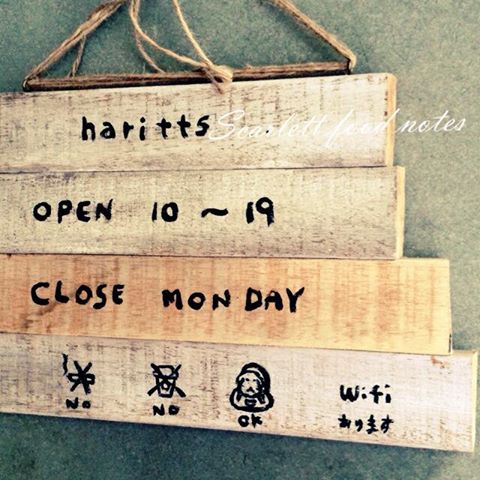 haritts
Scarlett food notes
OPEN 10 ~ 19
CLOSE MONDAY
NO NO OK Wifi
あります